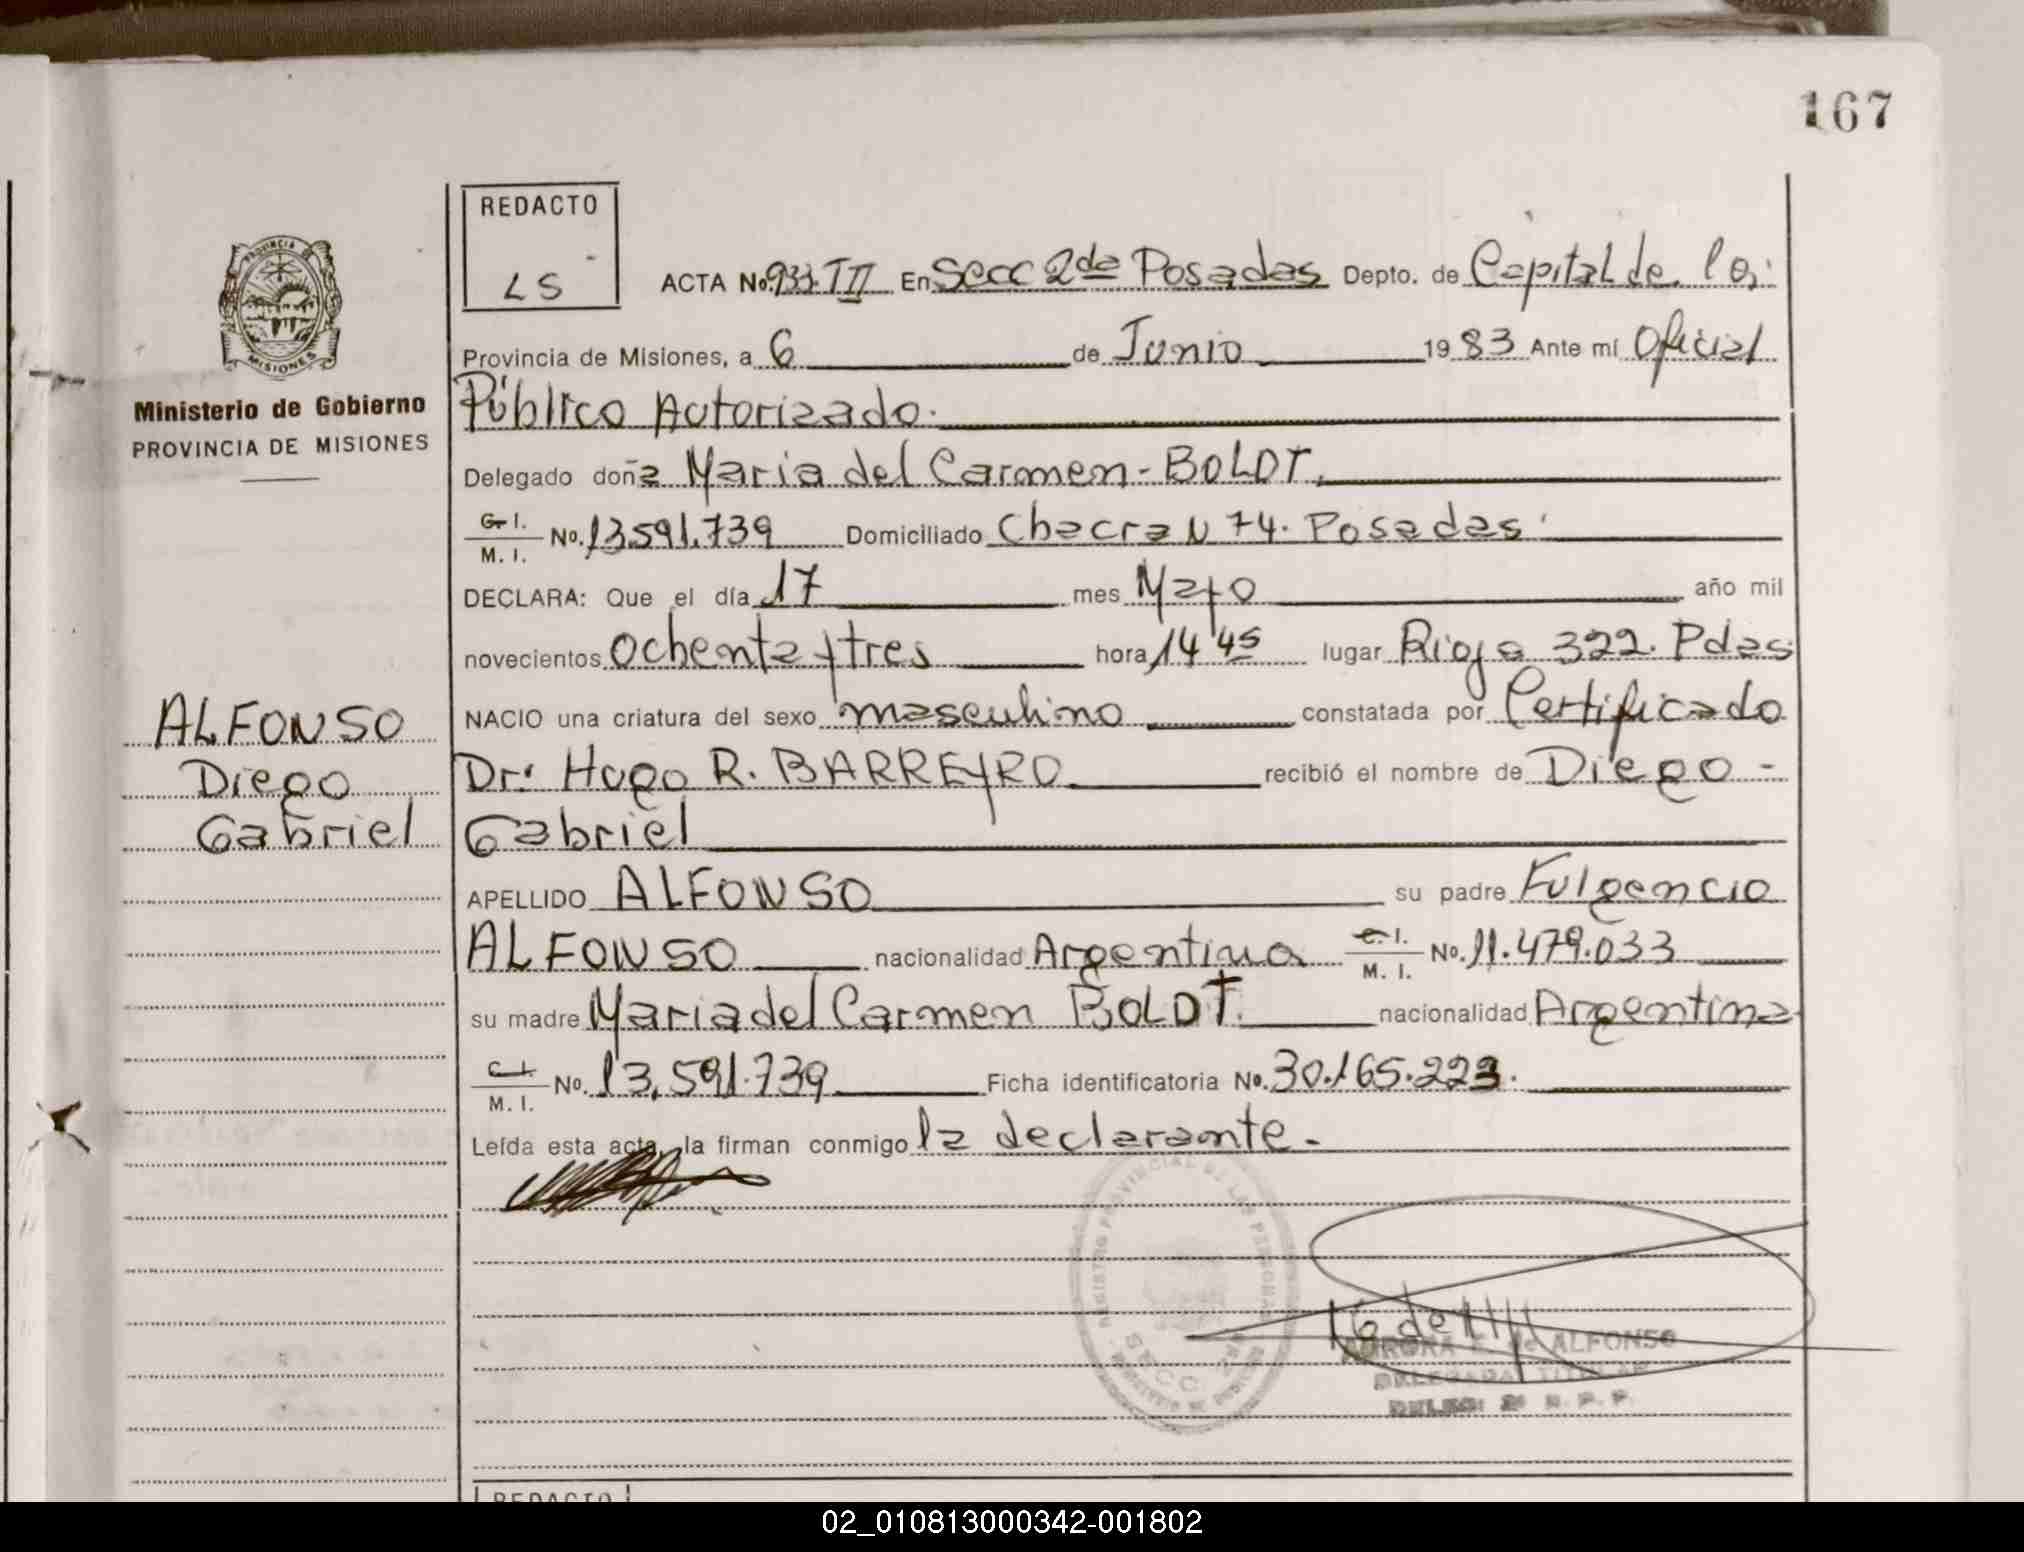 167
REDACTO
LS
ACTA No. 933. TII En Secc 2da Posadas Depto. de Capital de la
Provincia de Misiones, a 6 de Junio 1983 Ante mí Oficial
Público Autorizado.
Delegado doña Maria del Carmen - BOLDT.
C. I. / M. I. No. 13.591.739 Domiciliado Chacra N 74. Posadas
DECLARA: Que el día 17 mes Mayo año mil
novecientos ochenta y tres hora 14 45 lugar Rioja 322. Pdas
NACIO una criatura del sexo masculino constatada por Certificado
Dr. Hugo R. BARREYRO recibió el nombre de Diego -
Gabriel
APELLIDO ALFONSO su padre Fulgencio
ALFONSO nacionalidad Argentina C. I. / M. I. No. 11.479.033
su madre Maria del Carmen BOLDT. nacionalidad Argentina
C. I. / M. I. No. 13,591.739 Ficha identificatoria No. 30.165.223.
Leída esta acta, la firman conmigo la declarante.
PROVINCIA
MISIONES
Ministerio de Gobierno
PROVINCIA DE MISIONES
ALFONSO
Diego
Gabriel
REGISTRO PROVINCIAL DE LAS PERSONAS
SECC.
AURORA de ALFONSO
DELEGADA TITULAR
DELEG. 2ª R. P. P.
REDACTO
02_010813000342-001802